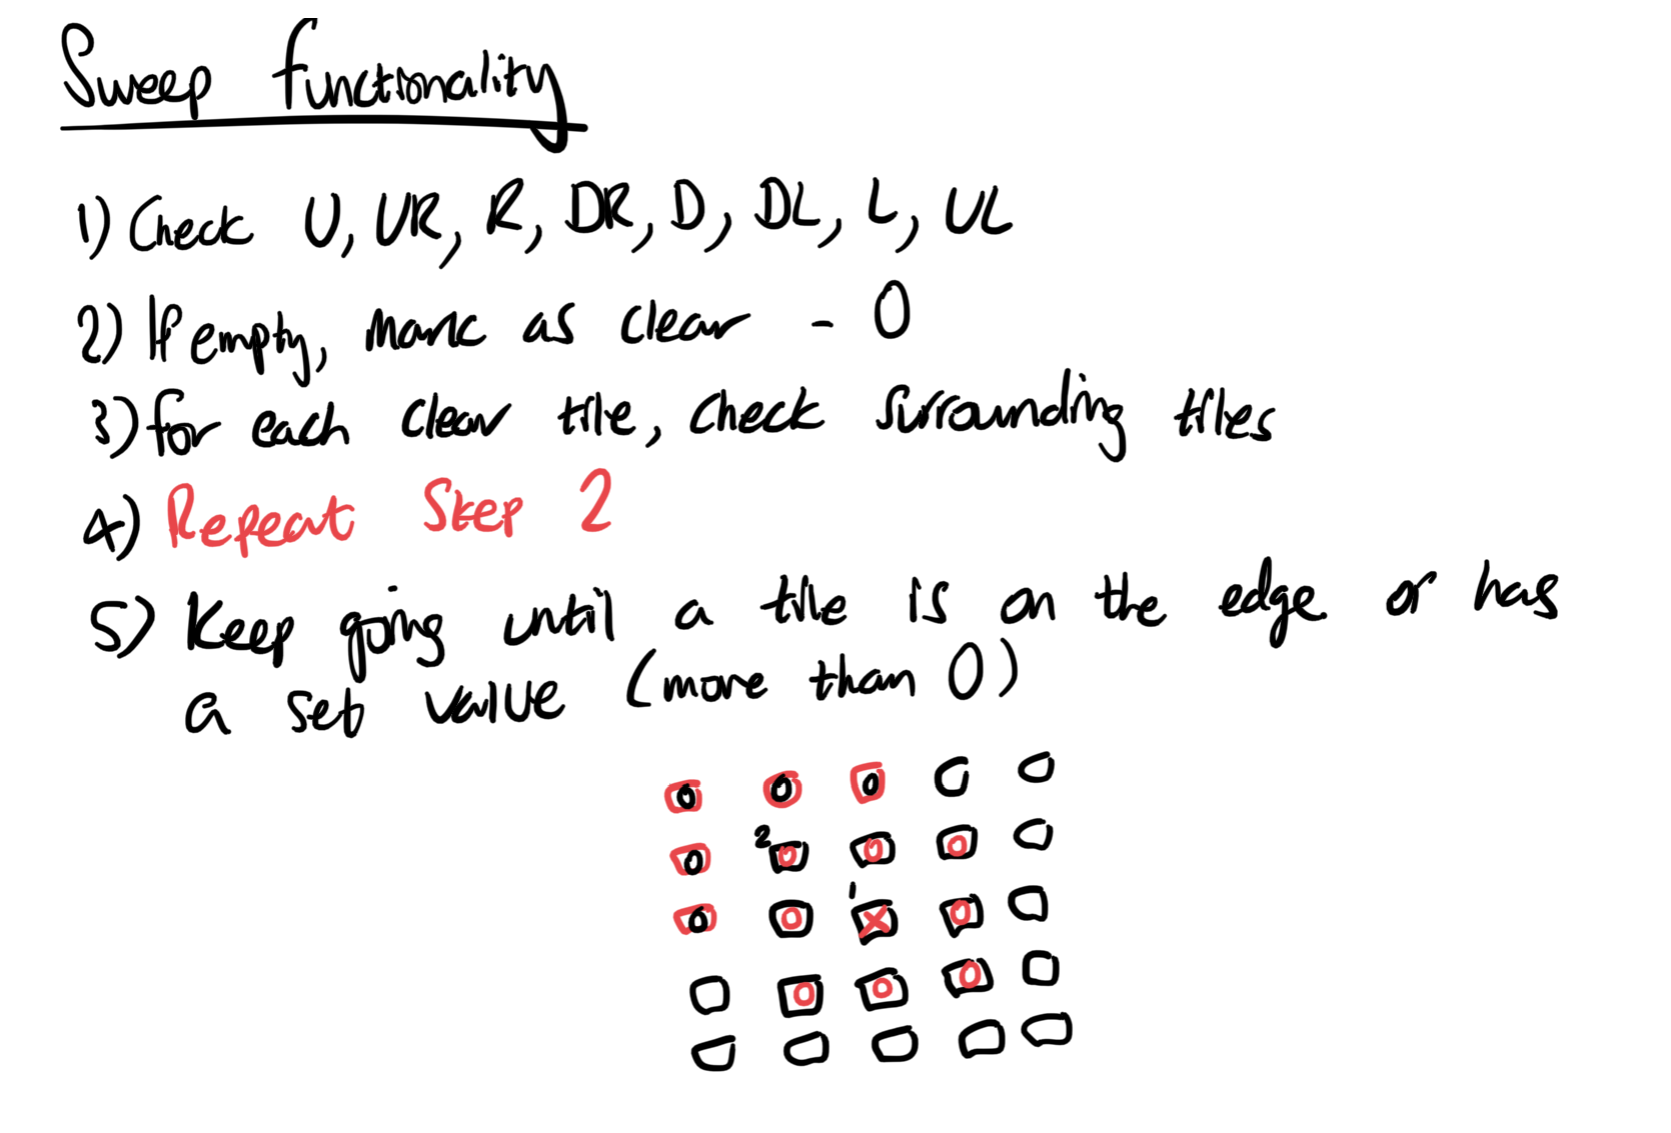 Sweep functionality
1) Check U, UR, R, DR, D, DL, L, UL
2) If empty, mark as clear - 0
3) for each clear tile, check surrounding tiles
4) Repeat Step 2
5) Keep going until a tile is on the edge or has
a set value (more than 0)
0 0 0
0 2 0 0 0
0 0 1 X 0
0 0 0